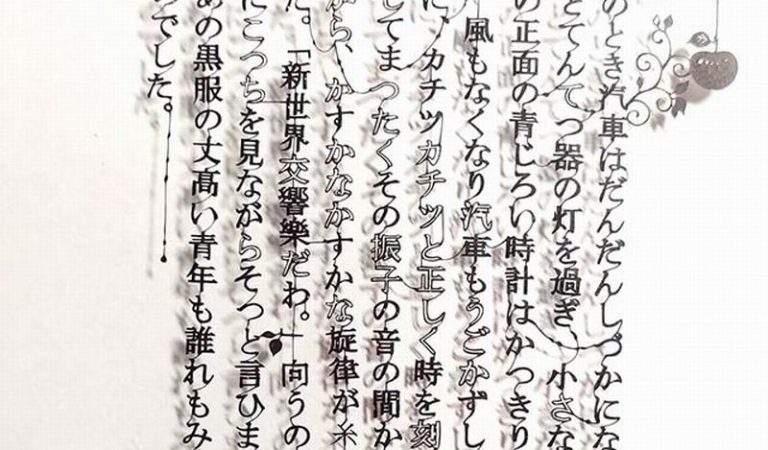 のとき汽車はだんだんしづかにな
とてんてつ器の灯を過ぎ、小さな
の正面の青じろい時計はかつきり
風もなくなり汽車もうごかずし
に、カチツカチツと正しく時を刻
してまつたくその振子の音の間か
ら、かすかなかすかな旋律が糸
た。「新世界交響樂だわ。」向うの
にこつちを見ながらそつと言ひま
あの黒服の丈髙い青年も誰れもみ
のでした。